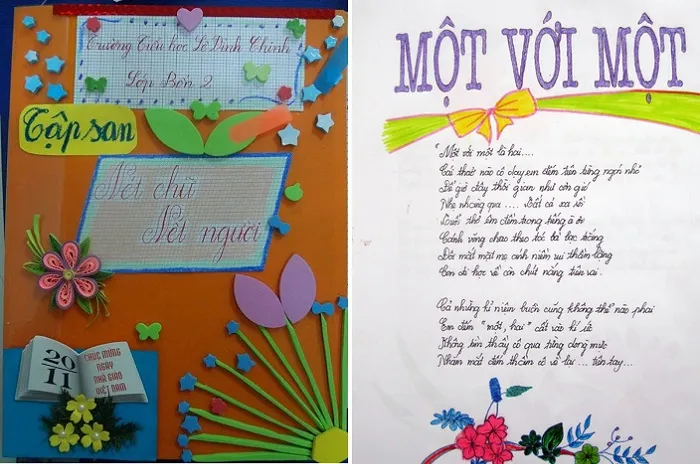 Trường Tiểu học Lê Đình Chinh
Lớp Bốn 2
Tập san
Nét chữ
Nết người
20
11
CHÚC MỪNG
NGÀY
NHÀ GIÁO
VIỆT NAM
MỘT VỚI MỘT
"Một với một là hai....
Cô thuở nào cô dạy em đếm trên từng ngón nhỏ
Để giờ đây thời gian như cơn gió
Nhẹ nhàng qua .... Tất cả xa rồi
Tuổi thơ êm đềm trong tiếng à ơi
Cánh võng chao theo tóc bà bạc trắng
Đôi mắt mẹ ánh niềm vui thầm lặng
Con đi học về còn chút nắng trên vai.
Cả những kỉ niệm buồn cũng không thể nào phai
Em đếm "một, hai" cất vào kí ức
Những thầy cô qua từng dòng mực
Nhắm mắt đếm thầm cô vẽ lại ... trên tay...